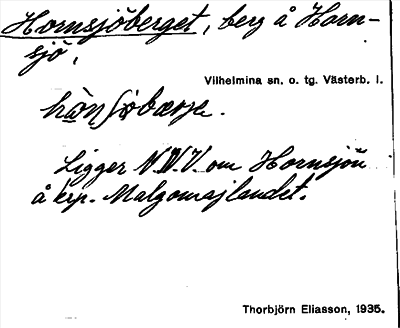 Hornsjöberget, berg å Horn-
sjö,
Vilhelmina sn. o. tg. Västerb. l.
Ligger N.V. om Hornsjön
å krp. Malgomajlandet.
Thorbjörn Eliasson, 1935.